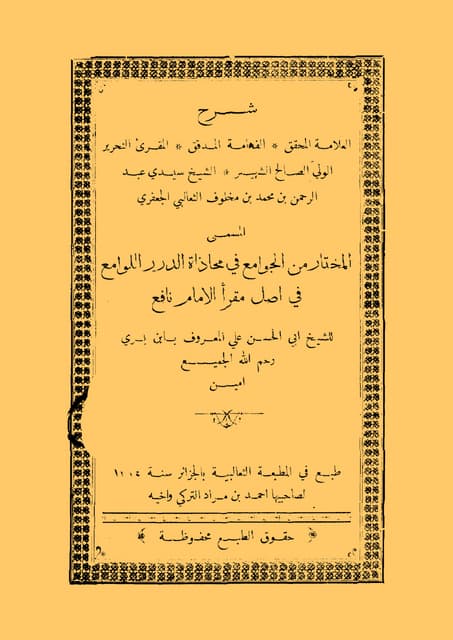 شرح
العلامة المحقق * الفهامة المدقق * المقرئ النحرير
الولي الصالح الشهير * الشيخ سيدي عبد
الرحمن بن محمد بن مخلوف الثعالبي الجعفري
المسمى
المختار من الجوامع في محاذاة الدرر اللوامع
في اصل مقرأ الامام نافع
للشيخ ابي الحسن علي المعروف بابن بري
رحم الله الجميع
امين
طبع في المطبعة الثعالبية بالجزائر سنة
لصاحبها احمد بن مراد التركي واخيه
حقوق الطبع محفوظة